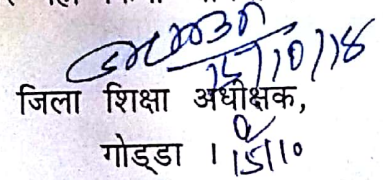 15/10/18
जिला शिक्षा अधीक्षक,
गोड्डा । 15/10